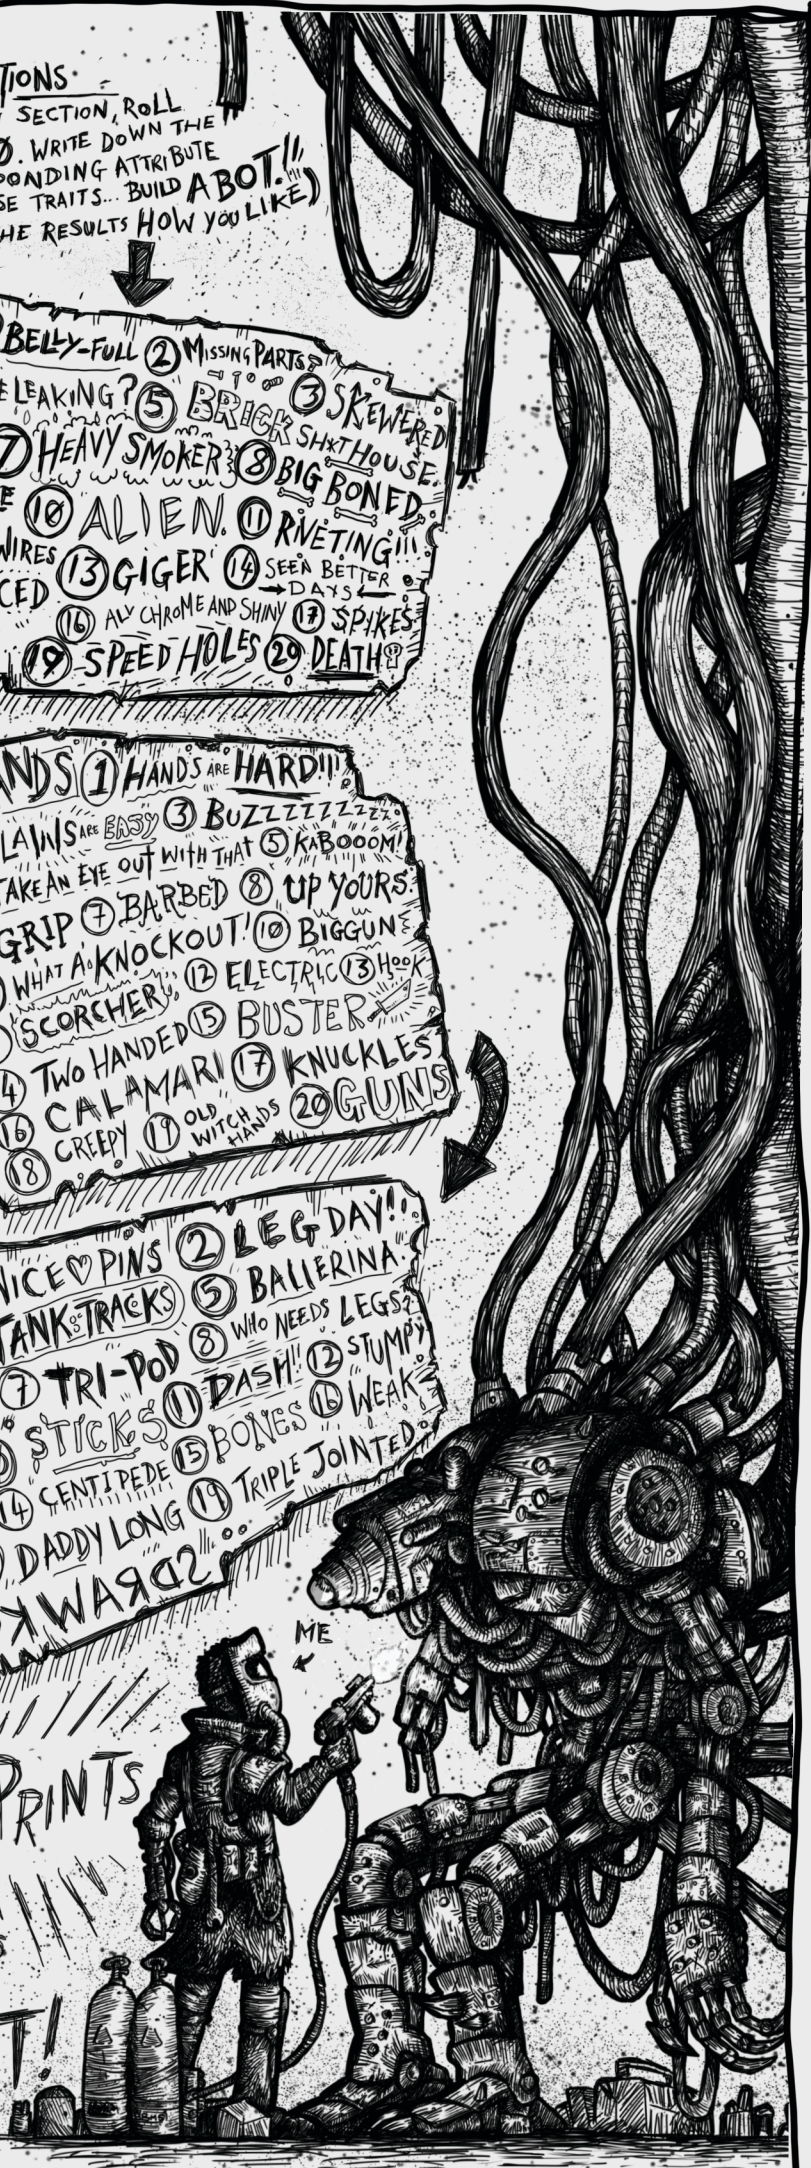 TIONS
SECTION, ROLL
WRITE DOWN THE
PONDING ATTRIBUTE
SE TRAITS... BUILD A BOT!!!
HE RESULTS HOW YOU LIKE)
BELLY-FULL ② MISSING PARTS?
LEAKING? ⑤ BRICK SH*THOUSE. ③ SKEWERED
⑦ HEAVY SMOKER ⑧ BIG BONED
⑩ ALIEN. ⑪ RIVETING!!!
WIRES ⑬ GIGER ⑭ SEEN BETTER DAYS
CED
⑯ ALL CHROME AND SHINY ⑰ SPIKES
⑲ SPEED HOLES ⑳ DEATH
ANDS ① HANDS ARE HARD!!!
LAWS ARE EASY ③ BUZZZZZZZZZ
TAKE AN EYE OUT WITH THAT ⑤ KABOOOM!
GRIP ⑦ BARBED ⑧ UP YOURS.
WHAT A KNOCKOUT! ⑩ BIGGUN
SCORCHER ⑫ ELECTRIC ⑬ HOOK
14 TWO HANDED ⑮ BUSTER
16 CALAMARI ⑰ KNUCKLES
⑱ CREEPY ⑲ OLD WITCH HANDS ⑳ GUNS
NICE PINS ② LEG DAY!!
TANK TRACKS ⑤ BALLERINA
⑦ TRI-POD ⑧ WHO NEEDS LEGS?
STICKS ⑪ DASH!! ⑫ STUMPY
14 CENTIPEDE ⑮ BONES ⑯ WEAK
DADDY LONG ⑲ TRIPLE JOINTED
KWARDS
ME
PRINTS
T!